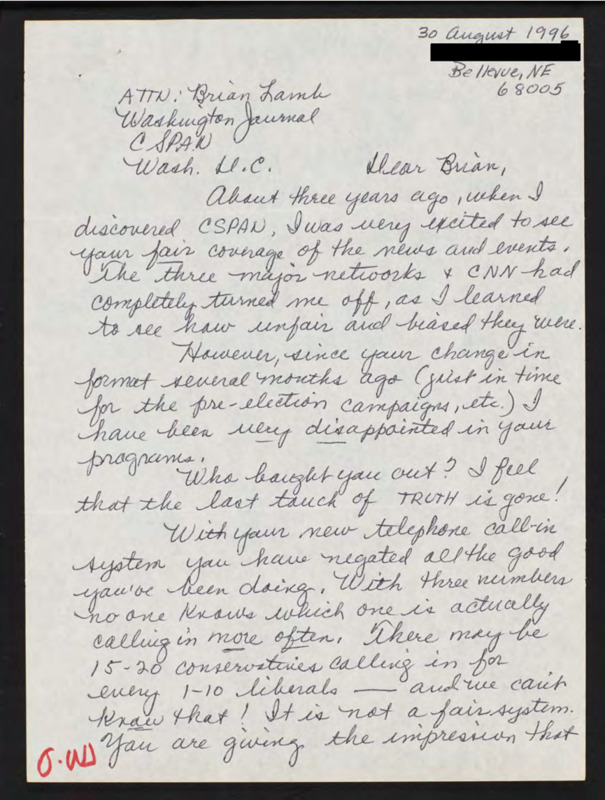 30 August 1996
Bellevue, NE
68005
ATTN: Brian Lamb
Washington Journal
CSPAN
Wash. D.C. Dear Brian,
About three years ago, when I
discovered CSPAN, I was very excited to see
your fair coverage of the news and events.
The three major networks & CNN had
completely turned me off, as I learned
to see how unfair and biased they were.
However, since your change in
format several months ago (just in time
for the pre-election campaigns, etc.) I
have been very disappointed in your
programs.
Who bought you out? I feel
that the last touch of TRUTH is gone!
With your new telephone call-in
system you have negated all the good
you've been doing. With three numbers
no one knows which one is actually
calling in more often. There may be
15-20 conservatives calling in for
every 1-10 liberals — and we can't
know that! It is not a fair system.
You are giving the impression that